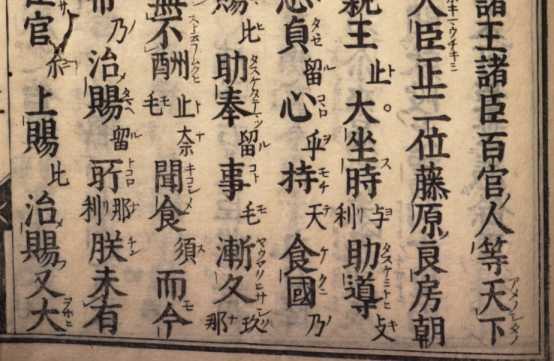 諸王諸臣百官人等天下
大臣正一位藤原良房朝
親王止大坐時与利助導攴
貞留心乎持天食國乃
賜比助奉留事毛漸久玖那
無不酬止奈毛聞食須而今
乃治賜留所那利朕未有
官尓上賜比治賜又大